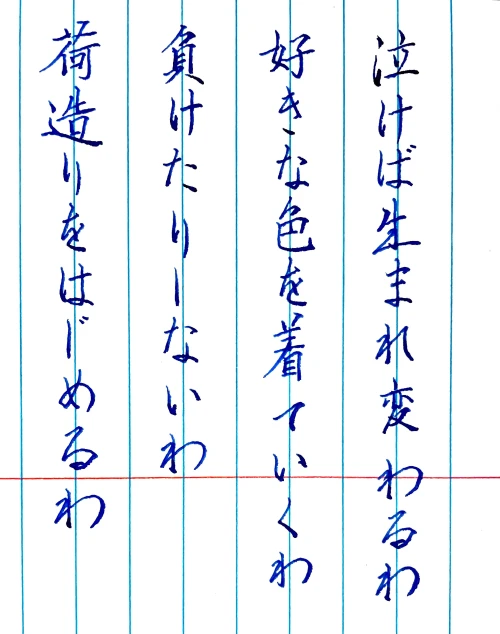 泣けば生まれ変わるわ
好きな色を着ていくわ
負けたりしないわ
荷造りをはじめるわ